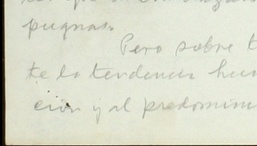 pugnas.
Pero sobre t
te la tendencia hu
ción y al predomin